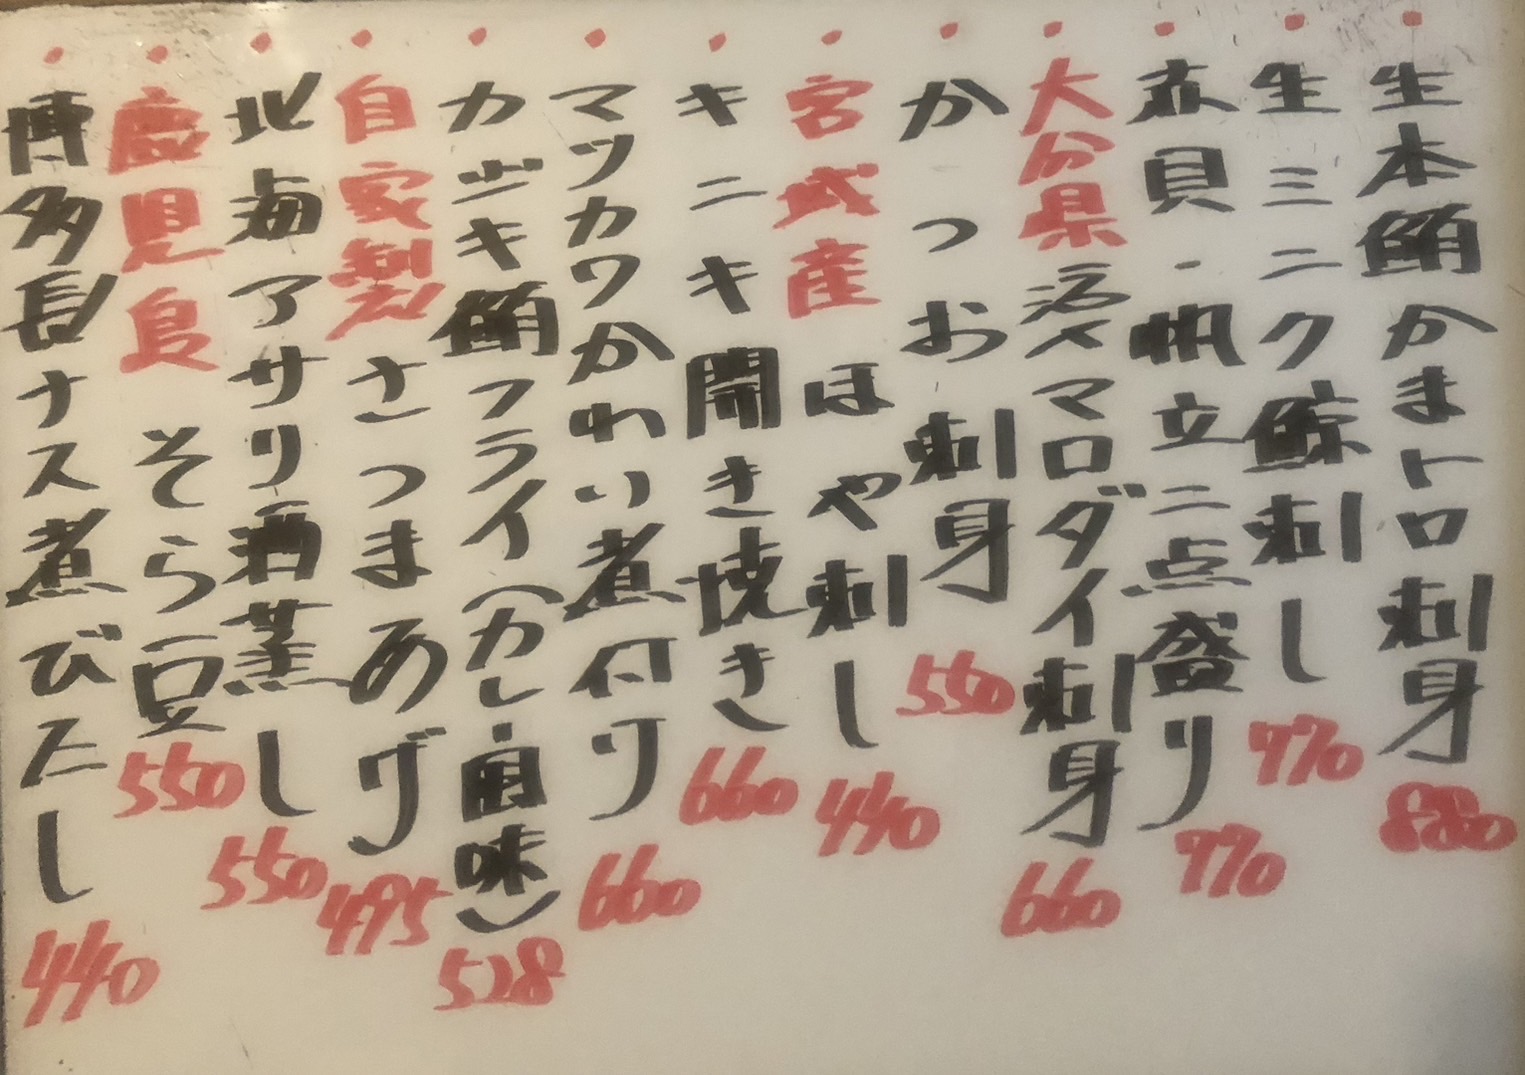 生本鮪かまトロ刺身 880
生ミニク鯨刺し 770
赤貝・帆立二点盛り 770
大分県 活〆マロダイ刺身 660
かつお刺身 550
宮城産 ほや刺し 440
キニキ開き焼き 660
マツカワかれい煮付け 660
カジキ鮪フライ(カレー風味) 528
自家製 さつまあげ 495
北海アサリ酒蒸し 550
鹿児島 そら豆 550
博多長ナス煮びたし 440